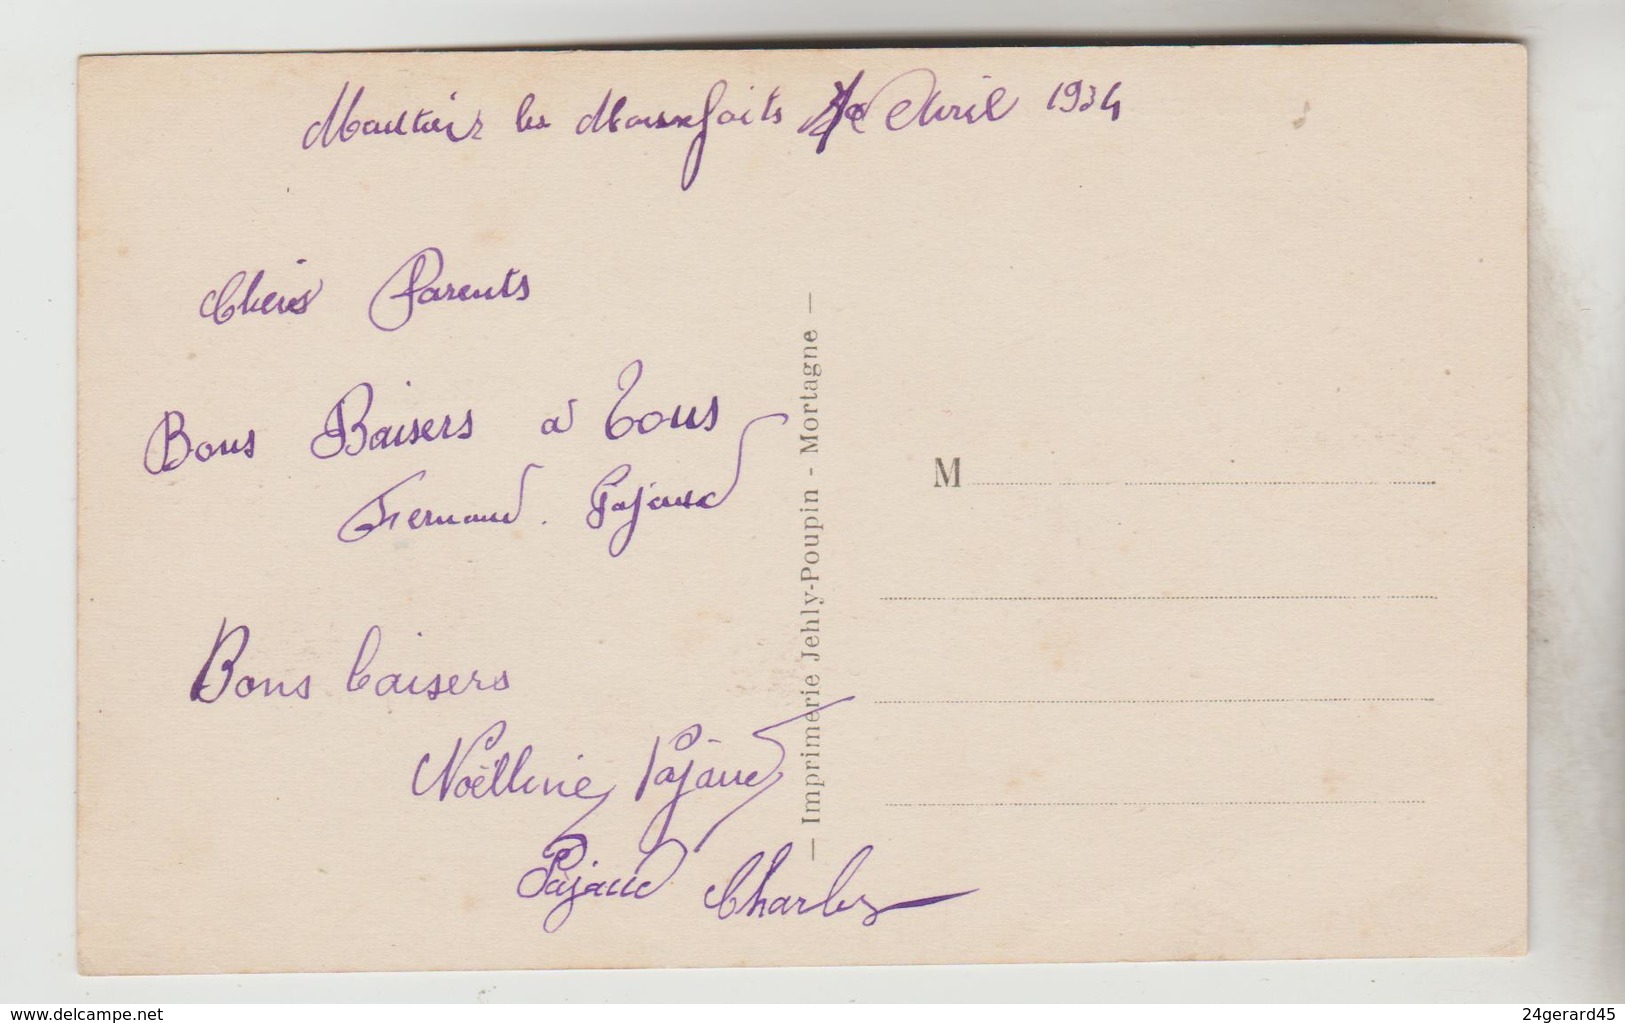 les Mauxfaits Avril 1934
Chers Parents
Bons Baisers à Tous
Fernand. Pajaud
Bons baisers
Noëlline Pajaud
Pajaud Charles
— Imprimerie Jehly-Poupin - Mortagne —
M
delcampe.net
24gerard45